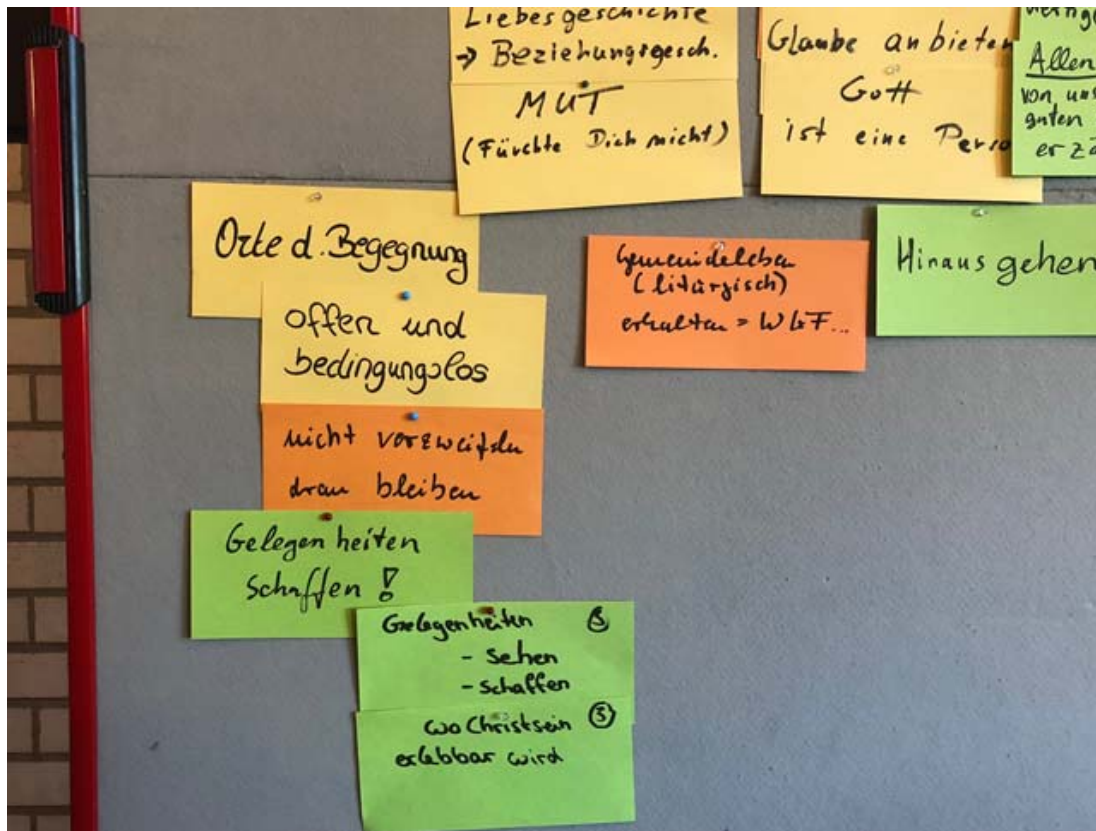 Liebesgeschichte
→ Beziehungsgesch.
MUT
(Fürchte Dich nicht)
Glaube anbieten
Gott
ist eine Perso
Allen
von uns
guten
erzä
Orte d. Begegnung
offen und
bedingungslos
nicht verzweifeln
dran bleiben
Gelegenheiten
schaffen!
Gelegenheiten
- sehen
- schaffen
wo Christsein
erlebbar wird
Gemeindeleben
(liturgisch)
erhalten = WGF...
Hinausgehen